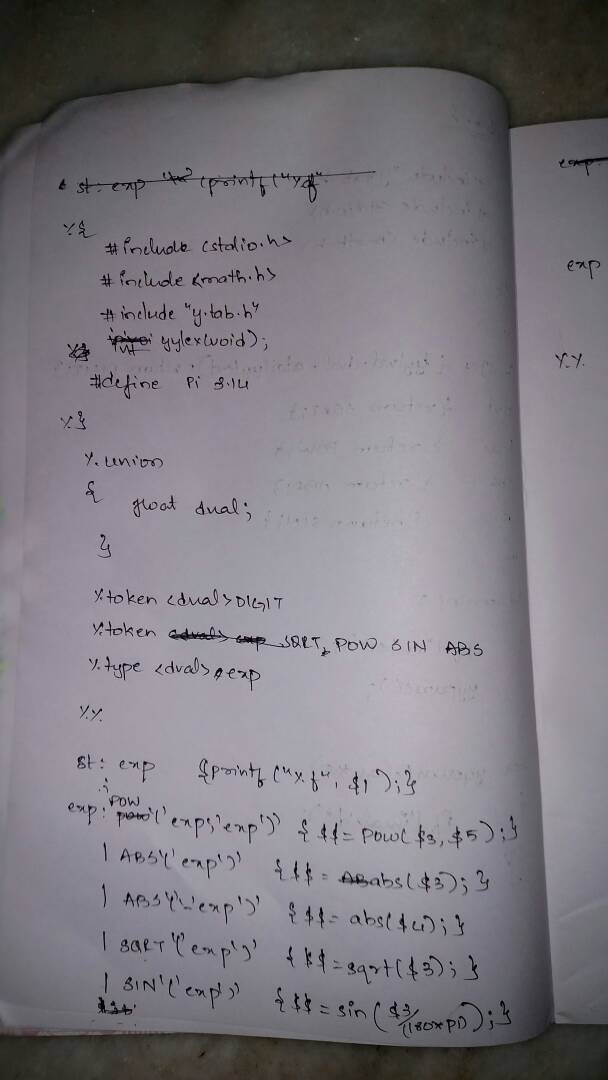 st: exp {printf("%f"
%{
#include <stdio.h>
#include <math.h>
#include "y.tab.h"
int yylex(void);
#define Pi 3.14
%}
%union
{
float dval;
}
%token <dval> DIGIT
%token SQRT, POW SIN ABS
%type <dval> exp
%%
st: exp {printf("%f", $1);}
;
exp: POW'('exp','exp')' {$$=pow($3,$5);}
| ABS'('exp')' {$$=abs($3);}
| ABS'('-'exp')' {$$=abs($4);}
| SQRT'('exp')' {$$=sqrt($3);}
| SIN'('exp')' {$$=sin($3/(180*PI));}
exp
exp
%%